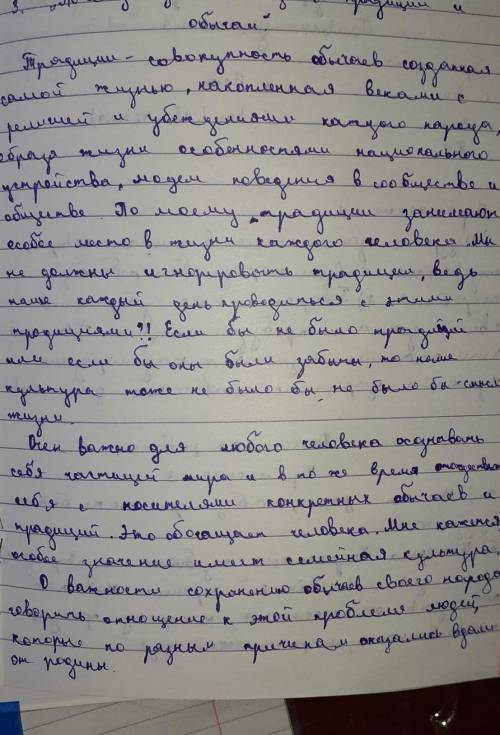 традиции и
обычаи?"
Традиции - совокупность обычаев созданная
самой жизнью, накопленная веками с
религией и убеждениями каждого народа,
образа жизни особенностями национального
устройства, людем поведения в сообществе и
обществе. По моему традиции занимают
особое место в жизни каждого человека. Мы
не должны игнорировать традиции, ведь
наше каждый день проводиться с этими
традициями?!! Если бы не было традиций
или если бы оны были забыты, то наше
культура тоже не было бы, не было бы смысл
жизни.
Очен важно для любого человека осознавать
себя частицей мира и в то же время
себя с носителями конкретных обычаев и
традиций. Это обогащает человека. Мне кажется
особое значение имеет семейная культура.
О важности сохранению обычаев своего народа
говорить отношение к этой проблеме людей,
которые по разным причинам оказались вдали
от родины.